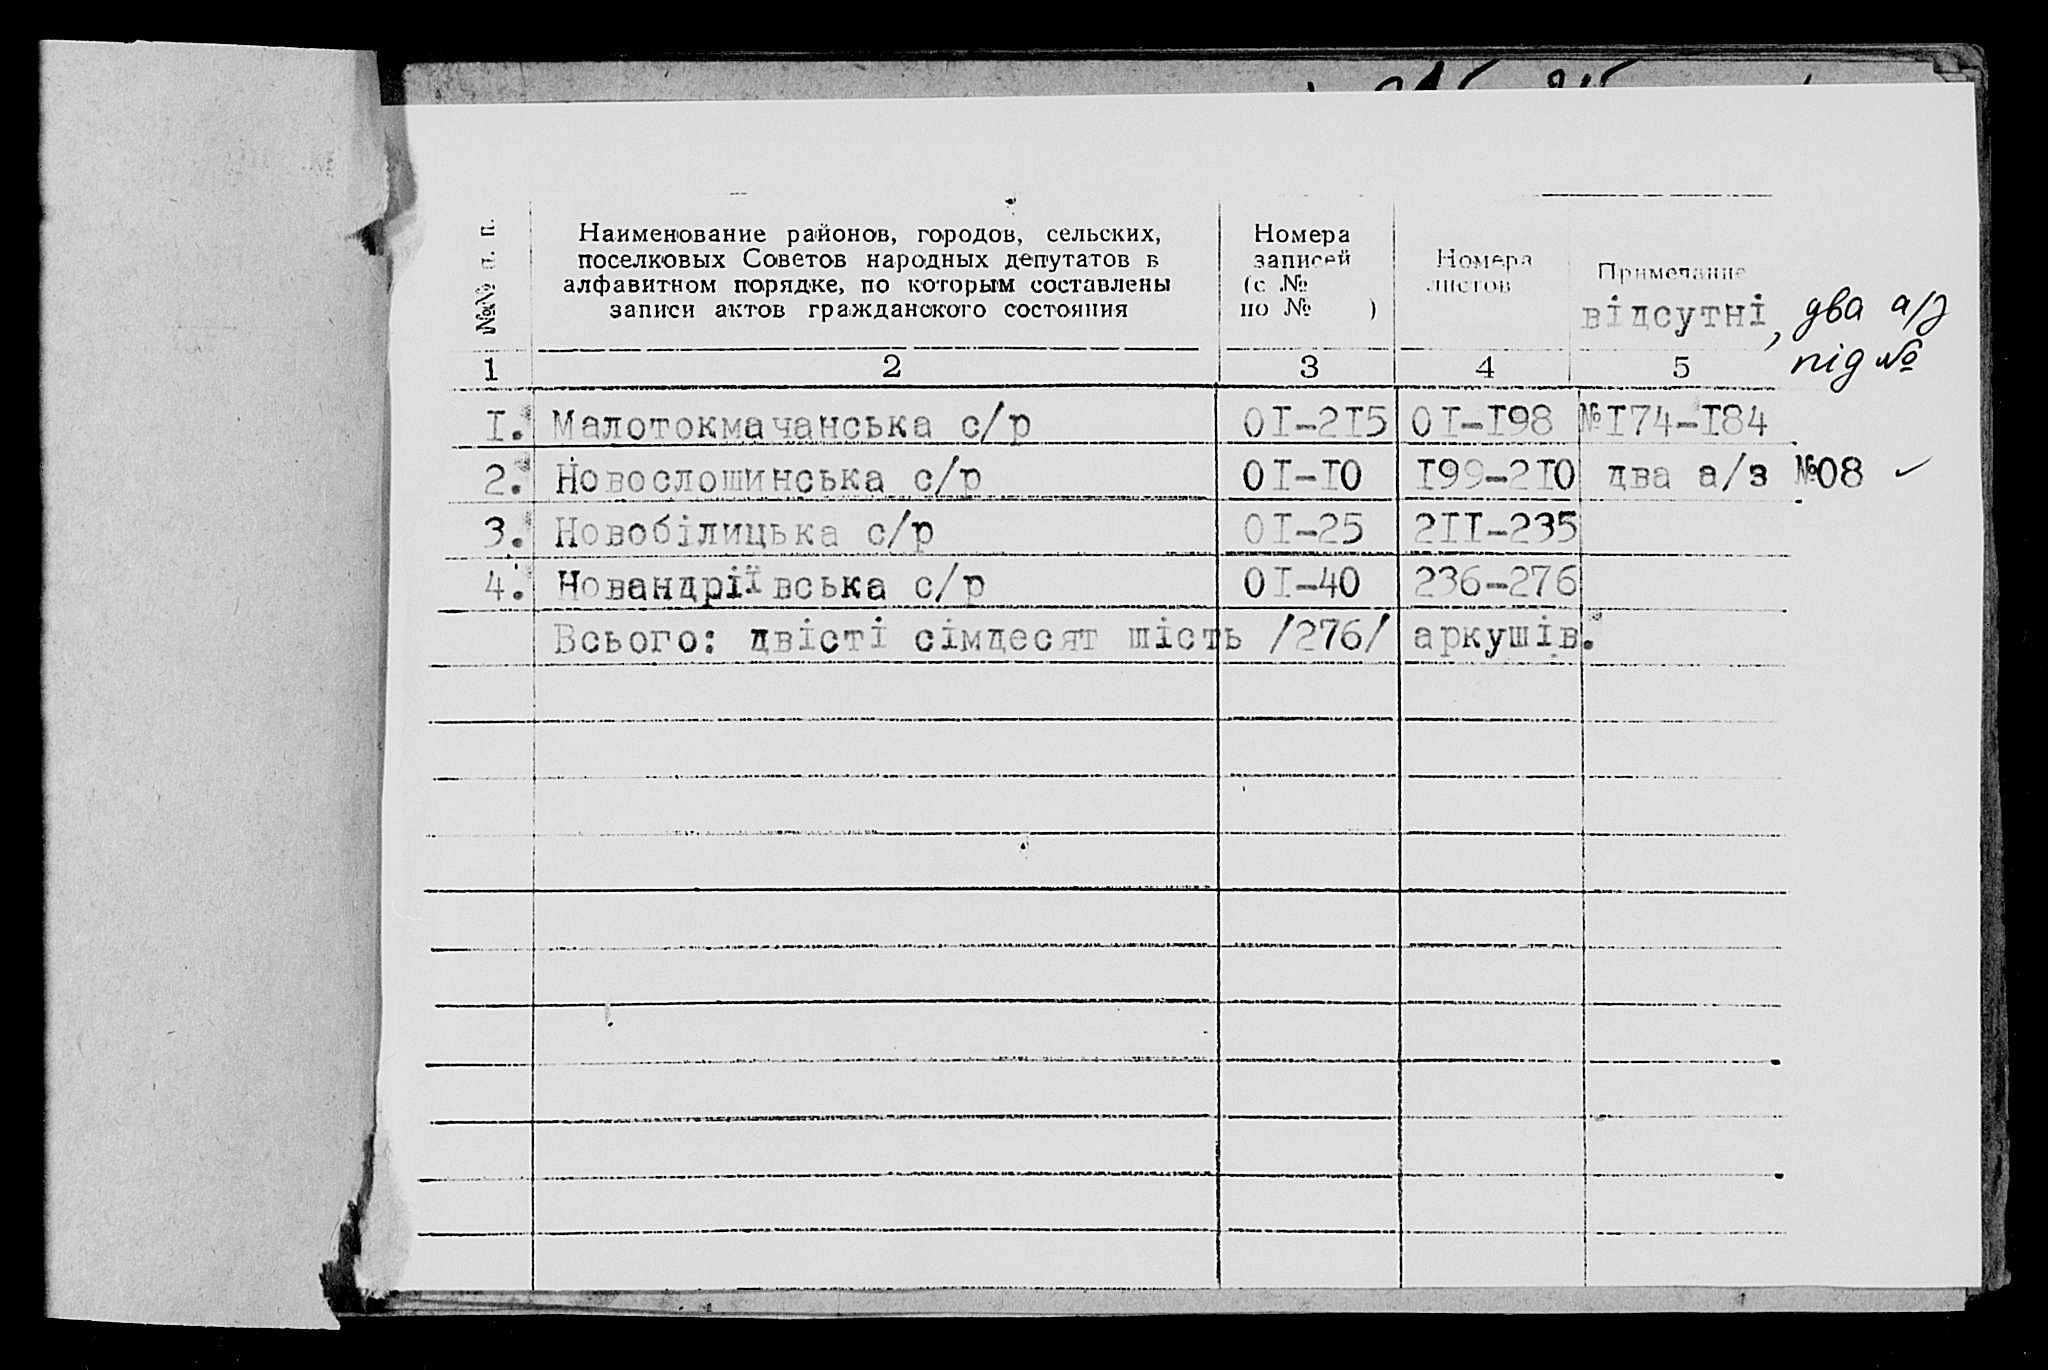 №№ п. п.
Наименование районов, городов, сельских,
поселковых Советов народных депутатов в
алфавитном порядке, по которым составлены
записи актов гражданского состояния
Номера
записей
(с №
по № )
Номера
листов
Примечание
відсутні, два а/з
під №
1 2 3 4 5
I. Малотокмачанська с/р 0I-2I5 0I-I98 №I74-I84
2. Новослошинська с/р 0I-I0 I99-2I0 два а/з №08 ✓
3. Новобілицька с/р 0I-25 2II-235
4. Новандріївська с/р 0I-40 236-276
Всього: двісті сімдесят шість /276/ аркушів.